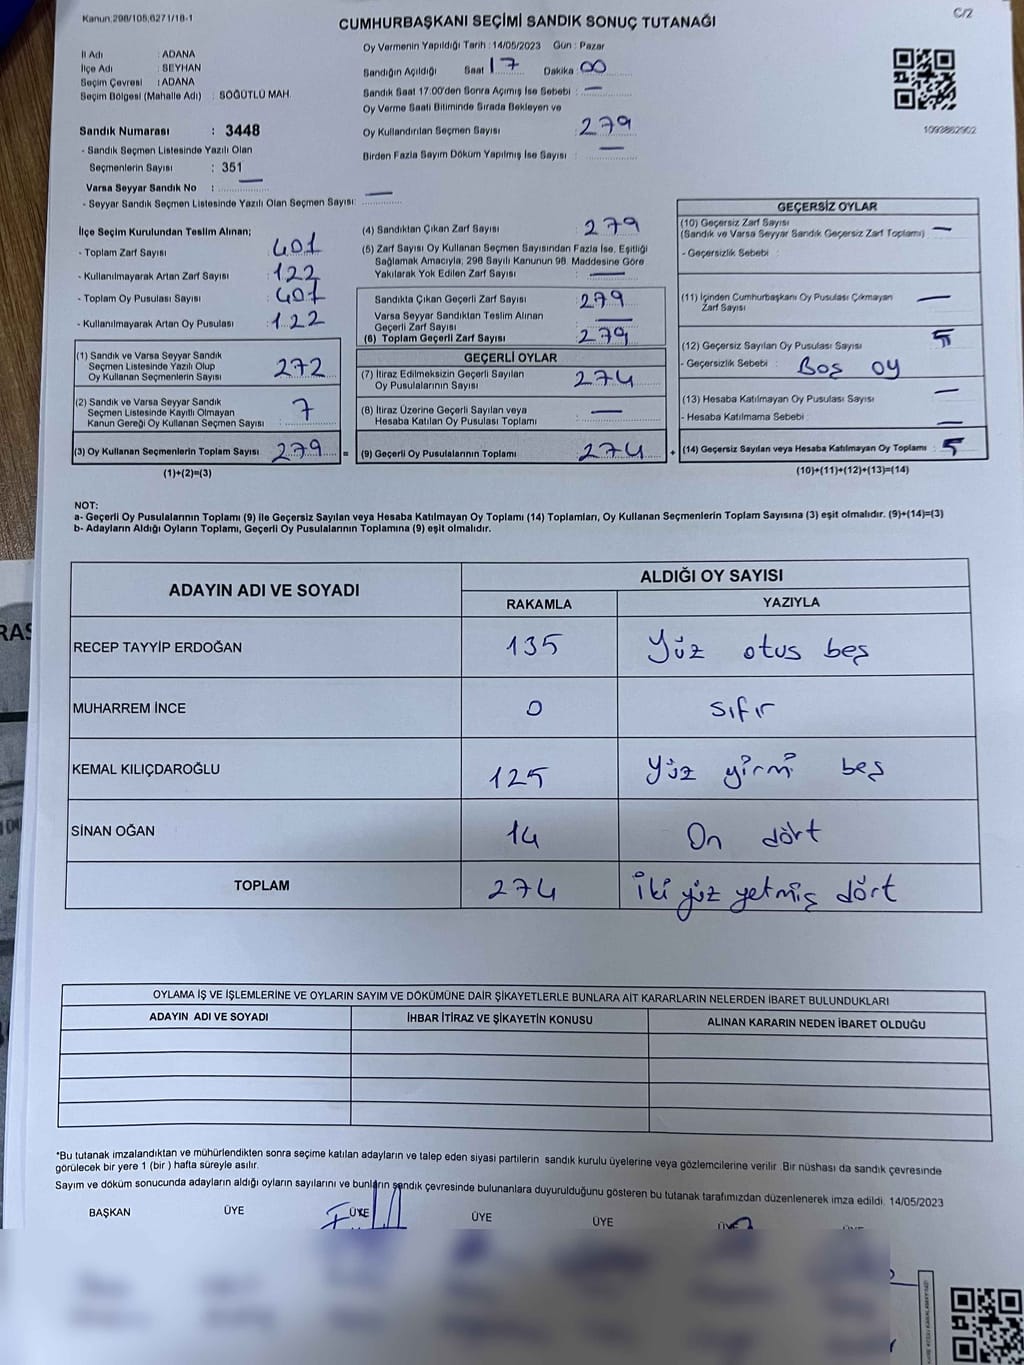 Kanun:298/105,6271/18-1
C/2
CUMHURBAŞKANI SEÇİMİ SANDIK SONUÇ TUTANAĞI
İl Adı : ADANA
İlçe Adı : SEYHAN
Seçim Çevresi : ADANA
Seçim Bölgesi (Mahalle Adı) : SÖĞÜTLÜ MAH.
Oy Vermenin Yapıldığı Tarih : 14/05/2023 Gün : Pazar
Sandığın Açıldığı Saat 17 Dakika : 00
Sandık Saat 17:00'den Sonra Açımış İse Sebebi : —
Oy Verme Saati Bitiminde Sırada Bekleyen ve
Oy Kullandırılan Seçmen Sayısı : 279
Birden Fazla Sayım Döküm Yapılmış İse Sayısı : —
1093862902
Sandık Numarası : 3448
- Sandık Seçmen Listesinde Yazılı Olan
Seçmenlerin Sayısı : 351
Varsa Seyyar Sandık No : —
- Seyyar Sandık Seçmen Listesinde Yazılı Olan Seçmen Sayısı: —
İlçe Seçim Kurulundan Teslim Alınan;
- Toplam Zarf Sayısı : 401
- Kullanılmayarak Artan Zarf Sayısı : 122
- Toplam Oy Pusulası Sayısı : 401
- Kullanılmayarak Artan Oy Pusulası : 122
(1) Sandık ve Varsa Seyyar Sandık
Seçmen Listesinde Yazılı Olup
Oy Kullanan Seçmenlerin Sayısı : 272
(2) Sandık ve Varsa Seyyar Sandık
Seçmen Listesinde Kayıtlı Olmayan
Kanun Gereği Oy Kullanan Seçmen Sayısı : 7
(3) Oy Kullanan Seçmenlerin Toplam Sayısı : 279 =
(1)+(2)=(3)
(4) Sandıktan Çıkan Zarf Sayısı : 279
(5) Zarf Sayısı Oy Kullanan Seçmen Sayısından Fazla İse, Eşitliği
Sağlamak Amacıyla, 298 Sayılı Kanunun 98. Maddesine Göre
Yakılarak Yok Edilen Zarf Sayısı : —
Sandıkta Çıkan Geçerli Zarf Sayısı : 279
Varsa Seyyar Sandıktan Teslim Alınan
Geçerli Zarf Sayısı : —
(6) Toplam Geçerli Zarf Sayısı : 279
GEÇERLİ OYLAR
(7) İtiraz Edilmeksizin Geçerli Sayılan
Oy Pusulalarının Sayısı : 274
(8) İtiraz Üzerine Geçerli Sayılan veya
Hesaba Katılan Oy Pusulası Toplamı : —
(9) Geçerli Oy Pusulalarının Toplamı : 274 +
GEÇERSİZ OYLAR
(10) Geçersiz Zarf Sayısı : —
(Sandık ve Varsa Seyyar Sandık Geçersiz Zarf Toplamı)
- Geçersizlik Sebebi :
(11) İçinden Cumhurbaşkanı Oy Pusulası Çıkmayan
Zarf Sayısı : —
(12) Geçersiz Sayılan Oy Pusulası Sayısı : 5
- Geçersizlik Sebebi : Boş oy
(13) Hesaba Katılmayan Oy Pusulası Sayısı : —
- Hesaba Katılmama Sebebi : —
(14) Geçersiz Sayılan veya Hesaba Katılmayan Oy Toplamı : 5
(10)+(11)+(12)+(13)=(14)
NOT:
a- Geçerli Oy Pusulalarının Toplamı (9) ile Geçersiz Sayılan veya Hesaba Katılmayan Oy Toplamı (14) Toplamları, Oy Kullanan Seçmenlerin Toplam Sayısına (3) eşit olmalıdır. (9)+(14)=(3)
b- Adayların Aldığı Oyların Toplamı, Geçerli Oy Pusulalarının Toplamına (9) eşit olmalıdır.
ADAYIN ADI VE SOYADI
ALDIĞI OY SAYISI
RAKAMLA YAZIYLA
RECEP TAYYİP ERDOĞAN 135 Yüz otus beş
MUHARREM İNCE 0 sıfır
KEMAL KILIÇDAROĞLU 125 yüz yirmi beş
SİNAN OĞAN 14 On dört
TOPLAM 274 iki yüz yetmiş dört
OYLAMA İŞ VE İŞLEMLERİNE VE OYLARIN SAYIM VE DÖKÜMÜNE DAİR ŞİKAYETLERLE BUNLARA AİT KARARLARIN NELERDEN İBARET BULUNDUKLARI
ADAYIN ADI VE SOYADI İHBAR İTİRAZ VE ŞİKAYETİN KONUSU ALINAN KARARIN NEDEN İBARET OLDUĞU
*Bu tutanak imzalandıktan ve mühürlendikten sonra seçime katılan adayların ve talep eden siyasi partilerin sandık kurulu üyelerine veya gözlemcilerine verilir. Bir nüshası da sandık çevresinde
görülecek bir yere 1 (bir ) hafta süreyle asılır.
Sayım ve döküm sonucunda adayların aldığı oyların sayılarını ve bunların sandık çevresinde bulunanlara duyurulduğunu gösteren bu tutanak tarafımızdan düzenlenerek imza edildi. 14/05/2023
BAŞKAN ÜYE ÜYE ÜYE ÜYE